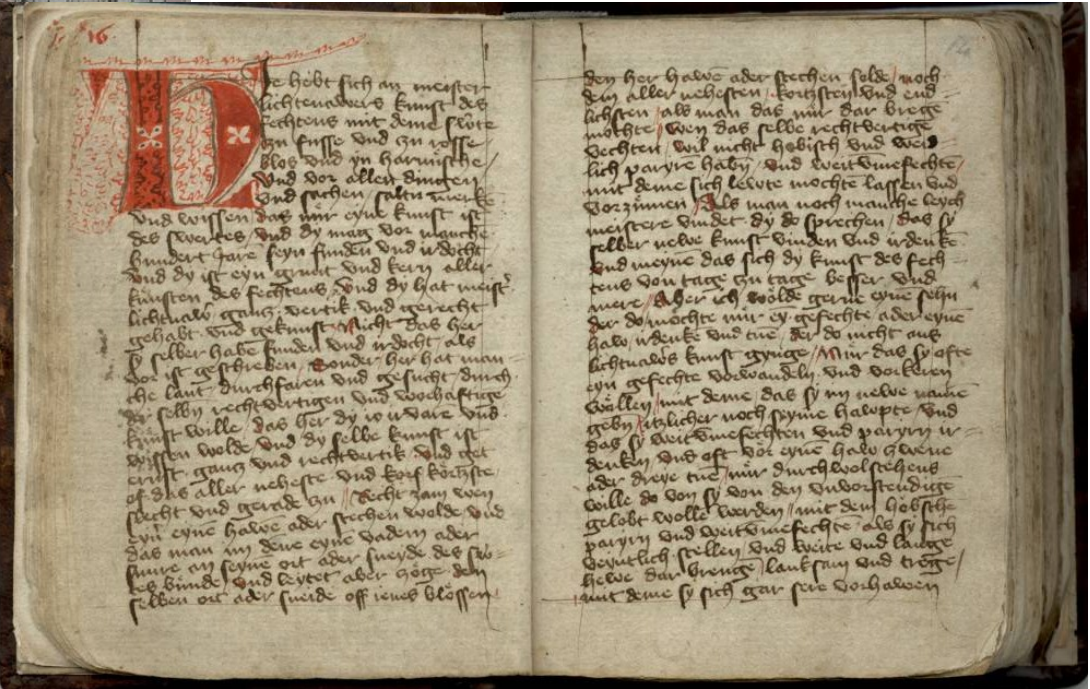 16
Hie hebt sich an meister
lichtenawers kunst des
fechtens mit deme swerte
zu fusse und zu rosse
blos und yn harnüsche /
Und vor allen dingen
und sachen / saltu merkē
und wissen / das nür eyne kunst ist
des swertes / und dy mag vor manchē
hundert Jaren seyn funden und irdocht /
und dy ist eyn grunt und kern aller
künsten des fechtens / und dy hat meist'
lichtnaw' ganz vertik und gerecht
gehabt und gekunst / Nicht das her
sy selber habe funden und irdocht / als
vor ist geschreben / Sonder her hat man =
che lant durchfaren und gesucht / durch
der selbn rechtvertigen und worhaftigē
kunst wille / das her dy io irvarē und
wissen wolde / und dy selbe kunst ist
ernst / ganz und rechtvertik / und get
of das aller neheste und kors körtzste
slecht und gerade zu // Recht zam wen
eyn' eynē hawē ader stechen wolde / und
das man im denne eynē vadem ader
snure an seynē ort ader sneyde des sw =
tes bünde / und leytet ader zöge den
selben ort ader sneide off ienes blössen /
den her hawē ader stechen solde / noch
dem aller nehesten körtzsten und end
lichsten / als man das nür dar brēgē
möchte / wen das selbe rechtvertige
vechten / wil nicht hobisch und weid
lich paryrē habn / und weit ümefechtē /
mit deme sich lewte mochten lassen und
vorzümen / Als man noch manche leych
meistere vindet / dy do sprechen / das sy
selber newe kunst vinden und irdenkē
und meynē das sich dy kunst des fech =
tens von tage zu tage besser und
mere // Aber ich wölde gerne eynē sehn
der do möchte nür ey gefechte ader eynē
haw irdenkē und tuē / der do nicht aus
lichtnaws kunst gynge / Nur das sy ofte
eyn gefechte vorwandeln und vorkeren
wöllen / mit deme / das sy im newe namē
gebn / itzlicher noch seyme hawpte / und
das sy weit ümefechten und paryrn ir =
denken / und oft vör eynē haw zwene
ader dreye tuē / nür durch wolstehens
wille / do von sy von den unvorstendigē
gelobt wollē werden / mit dem höbschē
paryrn und weit ümefechtē / als sy sich
veyntlich stellen / und weite und lange
hewe dar brengē lanksam und trege /
mit deme sy sich gar sere vorhawen